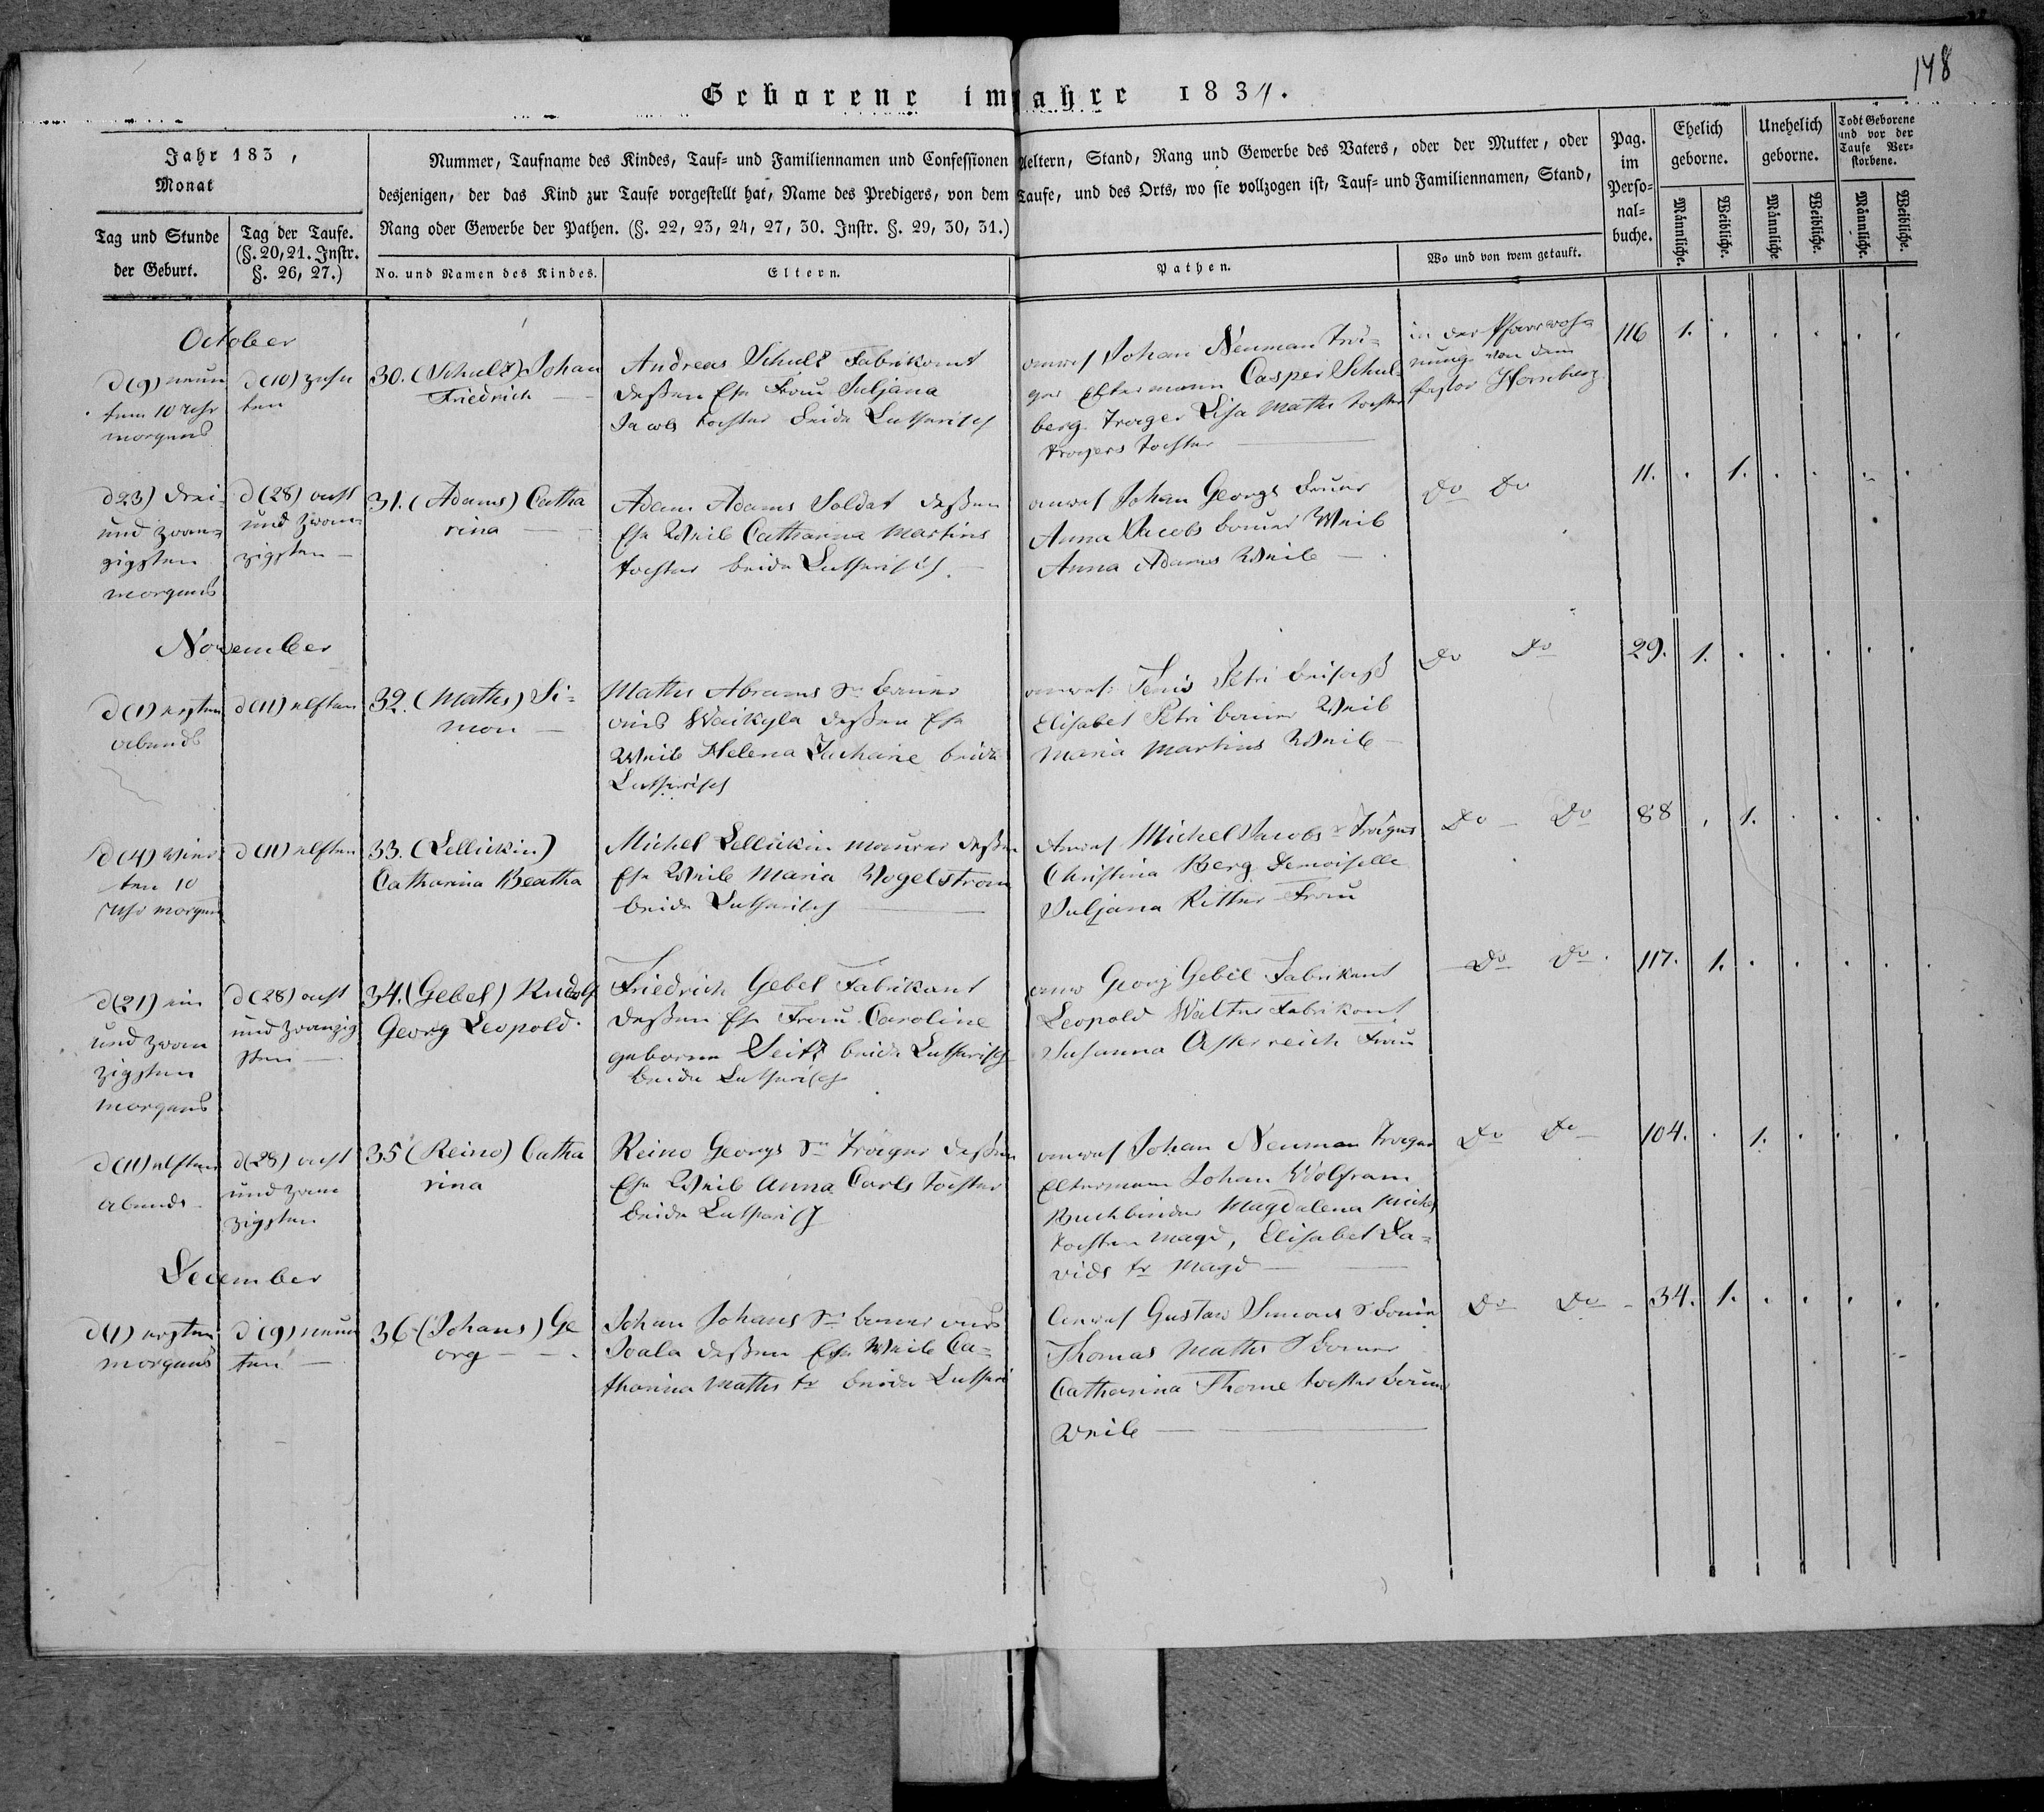 148
Geborene im Jahre 1834.
Jahr 183 ,
Monat
Tag und Stunde
der Geburt.
Tag der Taufe.
(§. 20, 21. Instr.
§. 26, 27.)
Nummer, Taufname des Kindes, Tauf- und Familiennamen und Confessionen Aeltern, Stand, Rang und Gewerbe des Vaters, oder der Mutter, oder
desjenigen, der das Kind zur Taufe vorgestellt hat, Name des Predigers, von dem Taufe, und des Orts, wo sie vollzogen ist, Tauf- und Familiennamen, Stand,
Rang oder Gewerbe der Pathen. (§. 22, 23, 24, 27, 30. Instr. §. 29, 30, 31.)
No. und Namen des Kindes.
Eltern.
Pathen.
Wo und von wem getauft.
Pag.
im
Perso-
nal-
buche.
Ehelich
geborne.
Unehelich
geborne.
Todt Geborene
und vor der
Taufe Ver-
storbene.
Männliche.
Weibliche.
Männliche
Weibliche.
Männliche.
Weibliche.
October
d (9) neun
ten 10 Uhr
morgens
d (10) zehn
ten
30. (Schulz) Johan
Friedrich
Andreas Schulz Fabrikant
deßen Ehe Frau Juljana
Jacobs tochter beide Lutherisch
anwes Johan Neuman Trä-
ger Eltermann Casper Schul
berg. Träger Lisa Maths tochter
trägers tochter
in der Pfarrwoh-
nung von dem
Pastor
116 1.
d 23) drei
und zwan-
zigsten
morgens
d (28) acht
und zwan-
zigsten
31. (Adams) Catha
rina
Adam Adams Soldat deßen
Ehe Weib Catharina Martins
tochter beide Lutherisch
anwes Johan Georgs bauer
Anna Jacobs bauer Weib
Anna Adams Weib
do do
11. 1.
November
d (1) ersten
abends
d (11) elften
32. (Maths) Si-
mon
Maths Abrams Sn bauer
aus Waikyla deßen Ehe
Weib Helena Zacharie beide
Lutherisch
anwes: Petri
Elisabet Petri bauer Weib
Maria Martins Weib
Do Do
29. 1.
d (4) vier
ten 10
Uhr morgen
d (11) elften
33. (Lellickin)
Catharina Beatha
Michel Lellickin maurer deßen
Ehe Weib Maria Vogelstrom
beide Lutherisch
Anwes Michel Jacobs Trägers
Christina Berg Demoiselle
Juljana Ritter Frau
Do Do
88 1.
d (21) ein
und zwan
zigsten
morgens
d (28) acht
und zwanzig
sten
34. (Gebel) Rudolf
Georg Leopold.
Friedrich Gebel Fabrikant
deßen Ehe Frau Caroline
geborne Seitz beide Lutherisch
beide Lutherisch
anw Georg Gebel Fabrikant
Leopold Walter Fabrikant
Susanna Frau
Do Do
117. 1.
d (11) elften
abends
d (28) acht
und zwan
zigsten
35 (Reino) Catha
rina
Reino Georgs Sn Träger deßen
Ehe Weib Anna Carls tochter
beide Lutherisch
anwes Johan Neuman Träger
Eltermann Johan Wolfram
Buchbinder Magdalena
tochter Magd, Elisabet Da-
vids tr Magd
Do Do
104. 1.
December
d (1) ersten
morgens
d (9) neun
ten
36. (Johans) Ge
org
Johan Johans Sn bauer aus
deßen Ehe Weib Ca-
tharina Maths tr beide Lutheri
Anwes Gustaw Simons S bauer
Thomas Maths S bauer
Catharina Thome tochter bauer
Weib
Do Do
34. 1.